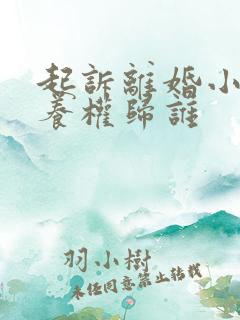 起訴離婚小
養權歸誰
羽小樹
未经同意禁止转载